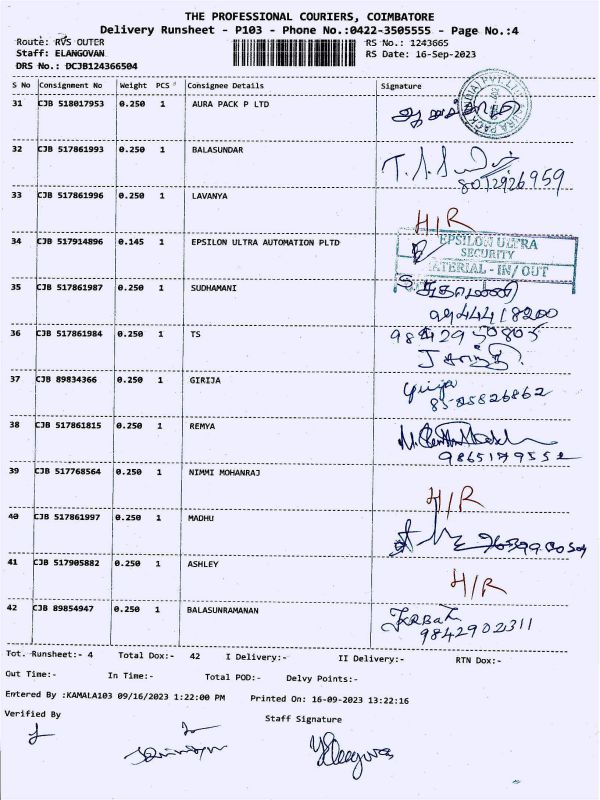 THE PROFESSIONAL COURIERS, COIMBATORE
Delivery Runsheet - P103 - Phone No.:0422-3505555 - Page No.:4
Route: RVS OUTER RS No.: 1243665
Staff: ELANGOVAN RS Date: 16-Sep-2023
DRS No.: DCJB124366504
S No Consignment No Weight PCS Consignee Details Signature
31 CJB 518017953 0.250 1 AURA PACK P LTD
32 CJB 517861993 0.250 1 BALASUNDAR
8012926959
33 CJB 517861996 0.250 1 LAVANYA
H/R
34 CJB 517914896 0.145 1 EPSILON ULTRA AUTOMATION PLTD EPSILON ULTRA
SECURITY
MATERIAL - IN/OUT
35 CJB 517861987 0.250 1 SUDHAMANI சுதாமணி
9944418200
36 CJB 517861984 0.250 1 TS
37 CJB 89834366 0.250 1 GIRIJA Girija
38 CJB 517861815 0.250 1 REMYA
9865179552
39 CJB 517768564 0.250 1 NIMMI MOHANRAJ
H/R
40 CJB 517861997 0.250 1 MADHU
41 CJB 517905882 0.250 1 ASHLEY
H/R
42 CJB 89854947 0.250 1 BALASUNRAMANAN
9842902311
Tot. Runsheet:- 4 Total Dox:- 42 I Delivery:- II Delivery:- RTN Dox:-
Out Time:- In Time:- Total POD:- Delvy Points:-
Entered By :KAMALA103 09/16/2023 1:22:00 PM Printed On: 16-09-2023 13:22:16
Verified By Staff Signature